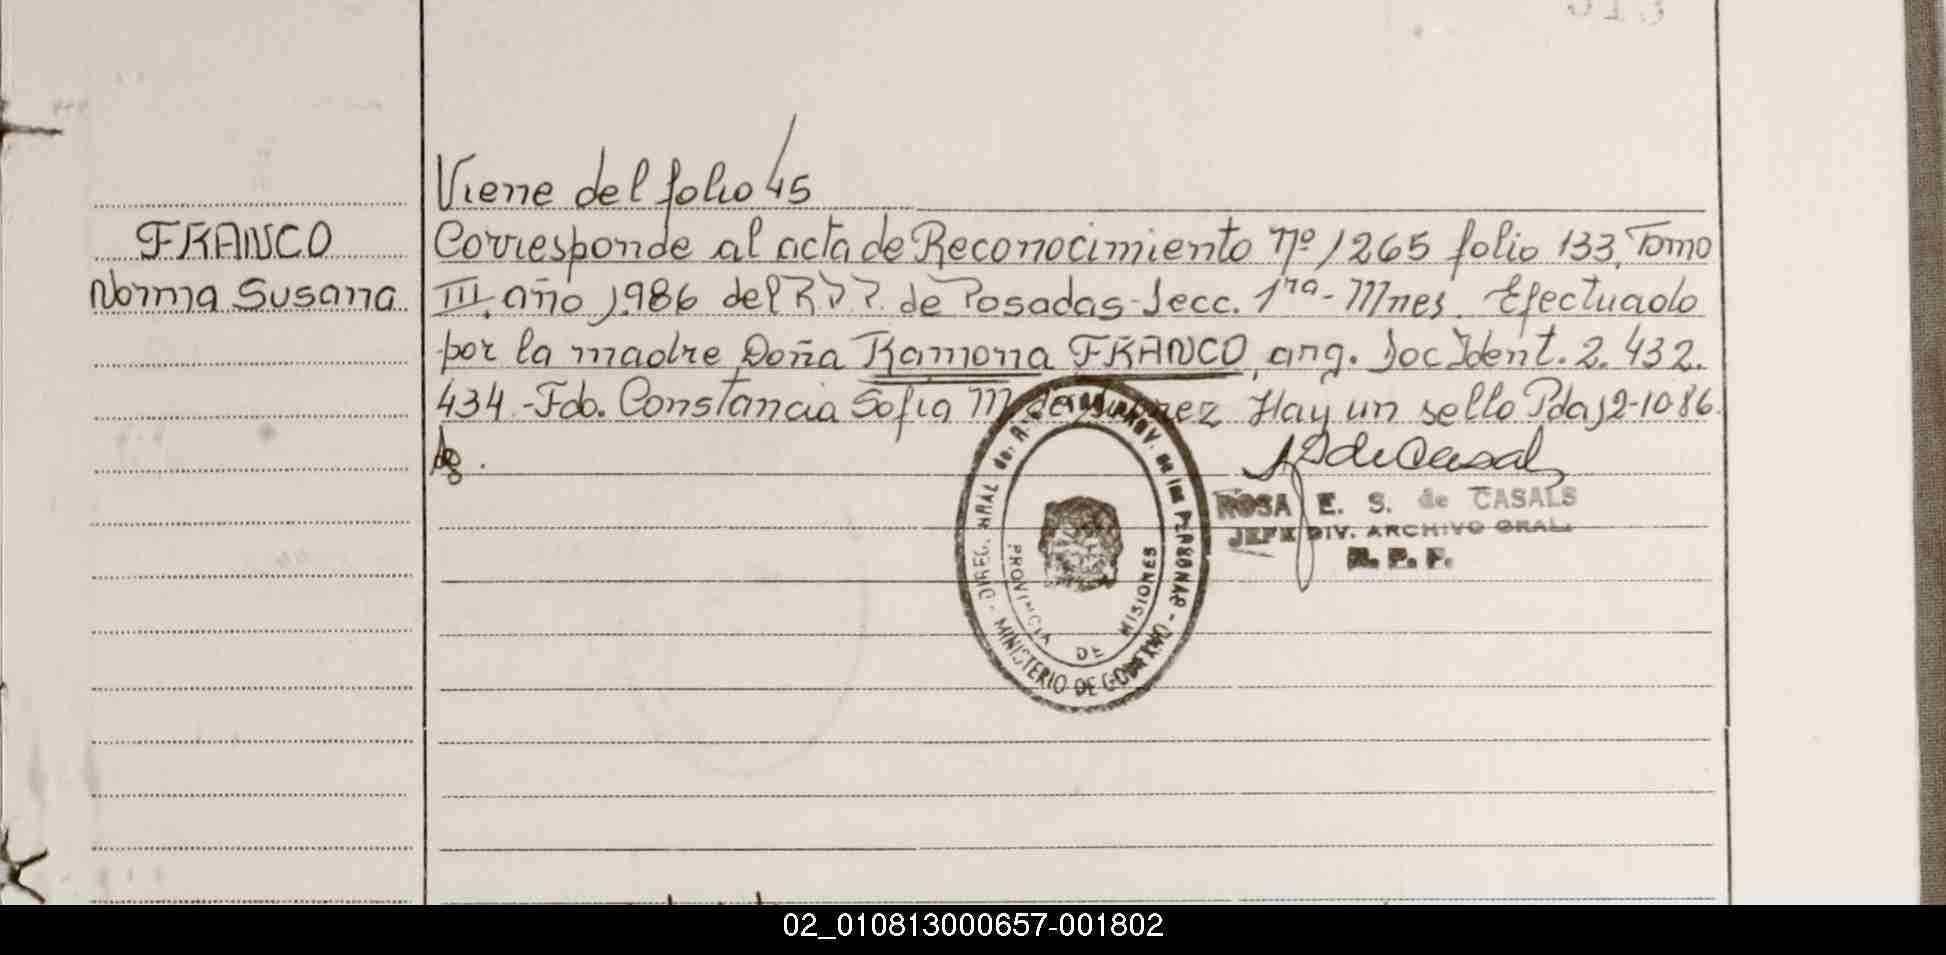 Viene del folio 45
FRANCO
Norma Susana
Corresponde al acta de Reconocimiento nº 1265 folio 133, Tomo
III. año 1986 del R.P.P. de Posadas-Secc. 1ra-Mnes. Efectuado
por la madre Doña Ramona FRANCO, arg. Doc Ident. 2.432.
434.-Fdo. Constancia Sofia M de Hay un sello Pdas 2-10 86.
ROSA E. S. de CASALS
JEFE DIV. ARCHIVO GRAL.
R. P. P.
MINISTERIO DE GOBIERNO
PROVINCIA DE MISIONES
02_010813000657-001802